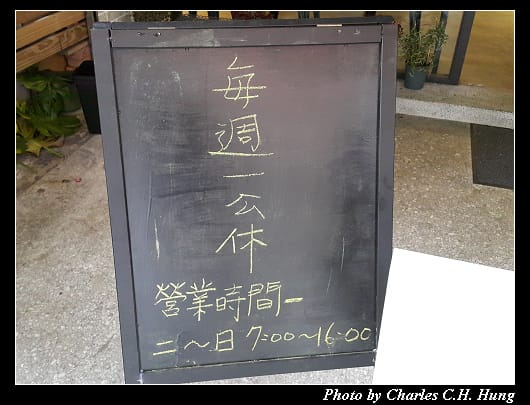 每週一公休
營業時間-
二～日 7:00～16:00
Photo by Charles C.H. Hung